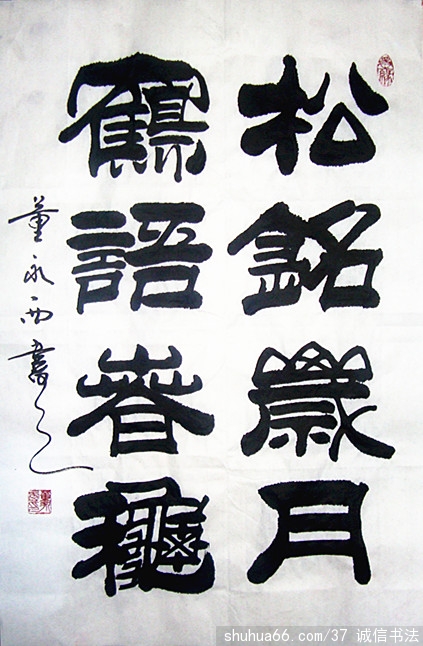 松銘歲月
鶴語春龝
董永西書之
shuhua66.com/37 诚信书法